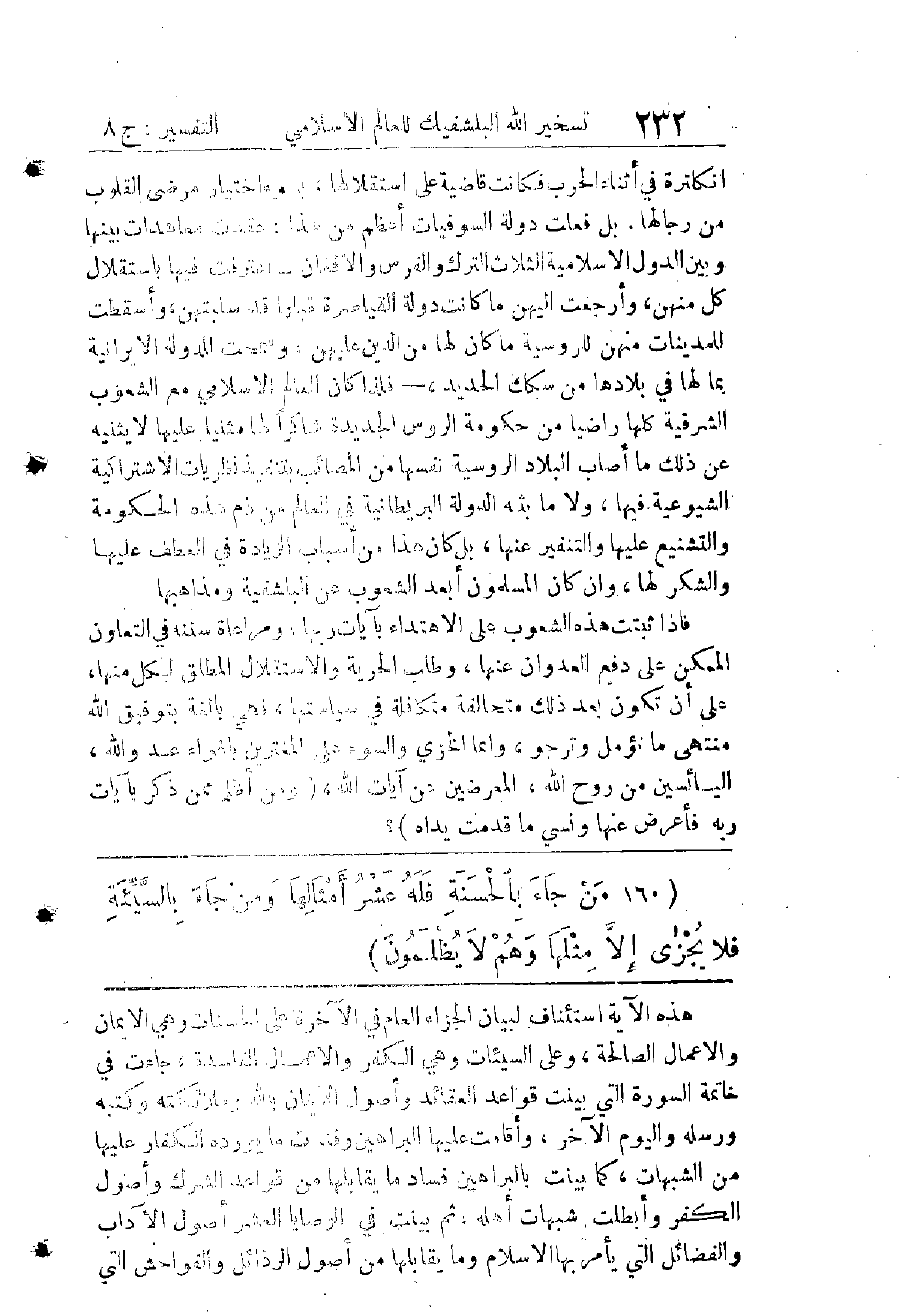 ٢٣٢ تسخير الله البلشفيك للعالم الاسلامي التفسير : ج ٨
انكلترة في أثناء الحرب فكانت قاضية على استقلالها ، اختيار مرضى القلوب
من رجالها . بل فعلت دولة السوفيات أعظم من هذا : عقدت معاهدات بينها
وبين الدول الاسلامية الثلاث الترك والفرس والافغان ــ اعترفت فيها باستقلال
كل منهن ، وأرجعت اليهن ما كانت دولة القياصرة قبلها قد سلبتهن ، وأسقطت
للمدينات منهن للروسية ما كان لها من الدين عليهن ، وسمحت للدولة الايرانية
بما لها في بلادها من سكك الحديد ، — فلذا كان العالم الاسلامي مع الشعوب
الشرقية كلها راضيا من حكومة الروس الجديدة شاكراً لها مثنيا عليها لا يثنيه
عن ذلك ما أصاب البلاد الروسية نفسها من المصائب بتنفيذ نظريات الاشتراكية
الشيوعية فيها ، ولا ما بثه الدولة البريطانية في العالم من ذم هذه الحكومة
والتشنيع عليها والتنفير عنها ، بل كان هذا من أسباب الزيادة في العطف عليها
والشكر لها ، وان كان المسلمون أبعد الشعوب عن البلشفية ومذاهبها
فاذا ثبتت هذه الشعوب على الاهتداء بآيات ربها ، ومراعاة سننه في التعاون
الممكن على دفع العدوان عنها ، وطلب الحرية والاستقلال المطلق لكل منها ،
على أن تكون بعد ذلك متحالفة متكافلة في سياستها ، فهي بالغة بتوفيق الله
منتهى ما تؤمل وترجو ، وانما الخزي والسوء على المغترين باغواء عدو الله ،
اليائسين من روح الله ، المعرضين عن آيات الله ، ( ومن أظلم ممن ذكر بآيات
ربه فأعرض عنها ونسي ما قدمت يداه ) ؟
( ١٦٠ مَنْ جَاءَ بِالْحَسَنَةِ فَلَهُ عَشْرُ أَمْثَالِهَا وَمَنْ جَاءَ بِالسَّيِّئَةِ
فَلا يُجْزَى إِلاَّ مِثْلَهَا وَهُمْ لاَ يُظْلَمُونَ )
هذه الآية استئناف لبيان الجزاء العام في الآخرة على الحسنات وهي الايمان
والاعمال الصالحة ، وعلى السيئات وهي الكفر والاعمال الفاسدة ، جاءت في
خاتمة السورة التي بينت قواعد العقائد وأصول الايمان بالله وملائكته وكتبه
ورسله واليوم الآخر ، وأقامت عليها البراهين وفندت ما يورده الكفار عليها
من الشبهات ، كما بينت بالبراهين فساد ما يقابلها من قواعد الشرك وأصول
الكفر وأبطلت شبهات أهله ، ثم بينت في الوصايا العشر أصول الآداب
والفضائل التي يأمر بها الاسلام وما يقابلها من أصول الرذائل والفواحش التي